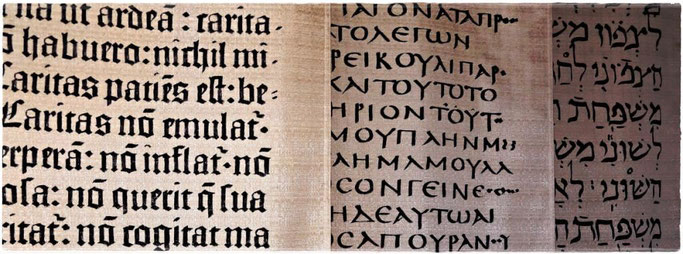 ut ardeā: carita-
ō habuero: nichil mi-
Caritas patiēs est: be-
Caritas nō emulat᷑·
erperā: nō inflat᷑·nō
osa: nō querit q̄ sua
ritat᷑: nō cogitat ma
ΤΑΓΟΝΑΤΑΠΡ
ΤΟΛΕΓΩΝ
ΡΕΙΒΟΥΛΙΠΑΡ
ΚΑΙΤΟΥΤΟΤΟ
ΗΡΙΟΝΤΟΥΤ
ΜΟΥΠΛΗΝΜΗ
ΛΗΜΑΜΟΥΑΛ
ϹΟΝΓΕΙΝΕ
ΗΔΕΑΥΤΩΑΓ
ϹΑΠΟΥΡΑΝΟΥ
לִצְפוֹן מִשְׁ
הַצְּפוֹנִי לְחַ
מִשְׁפַּחַת הַ
לְשׁוּנִי מִשְׁ
הַשּׁוּנִי לְאָ
מִשְׁפַּחַת הָ